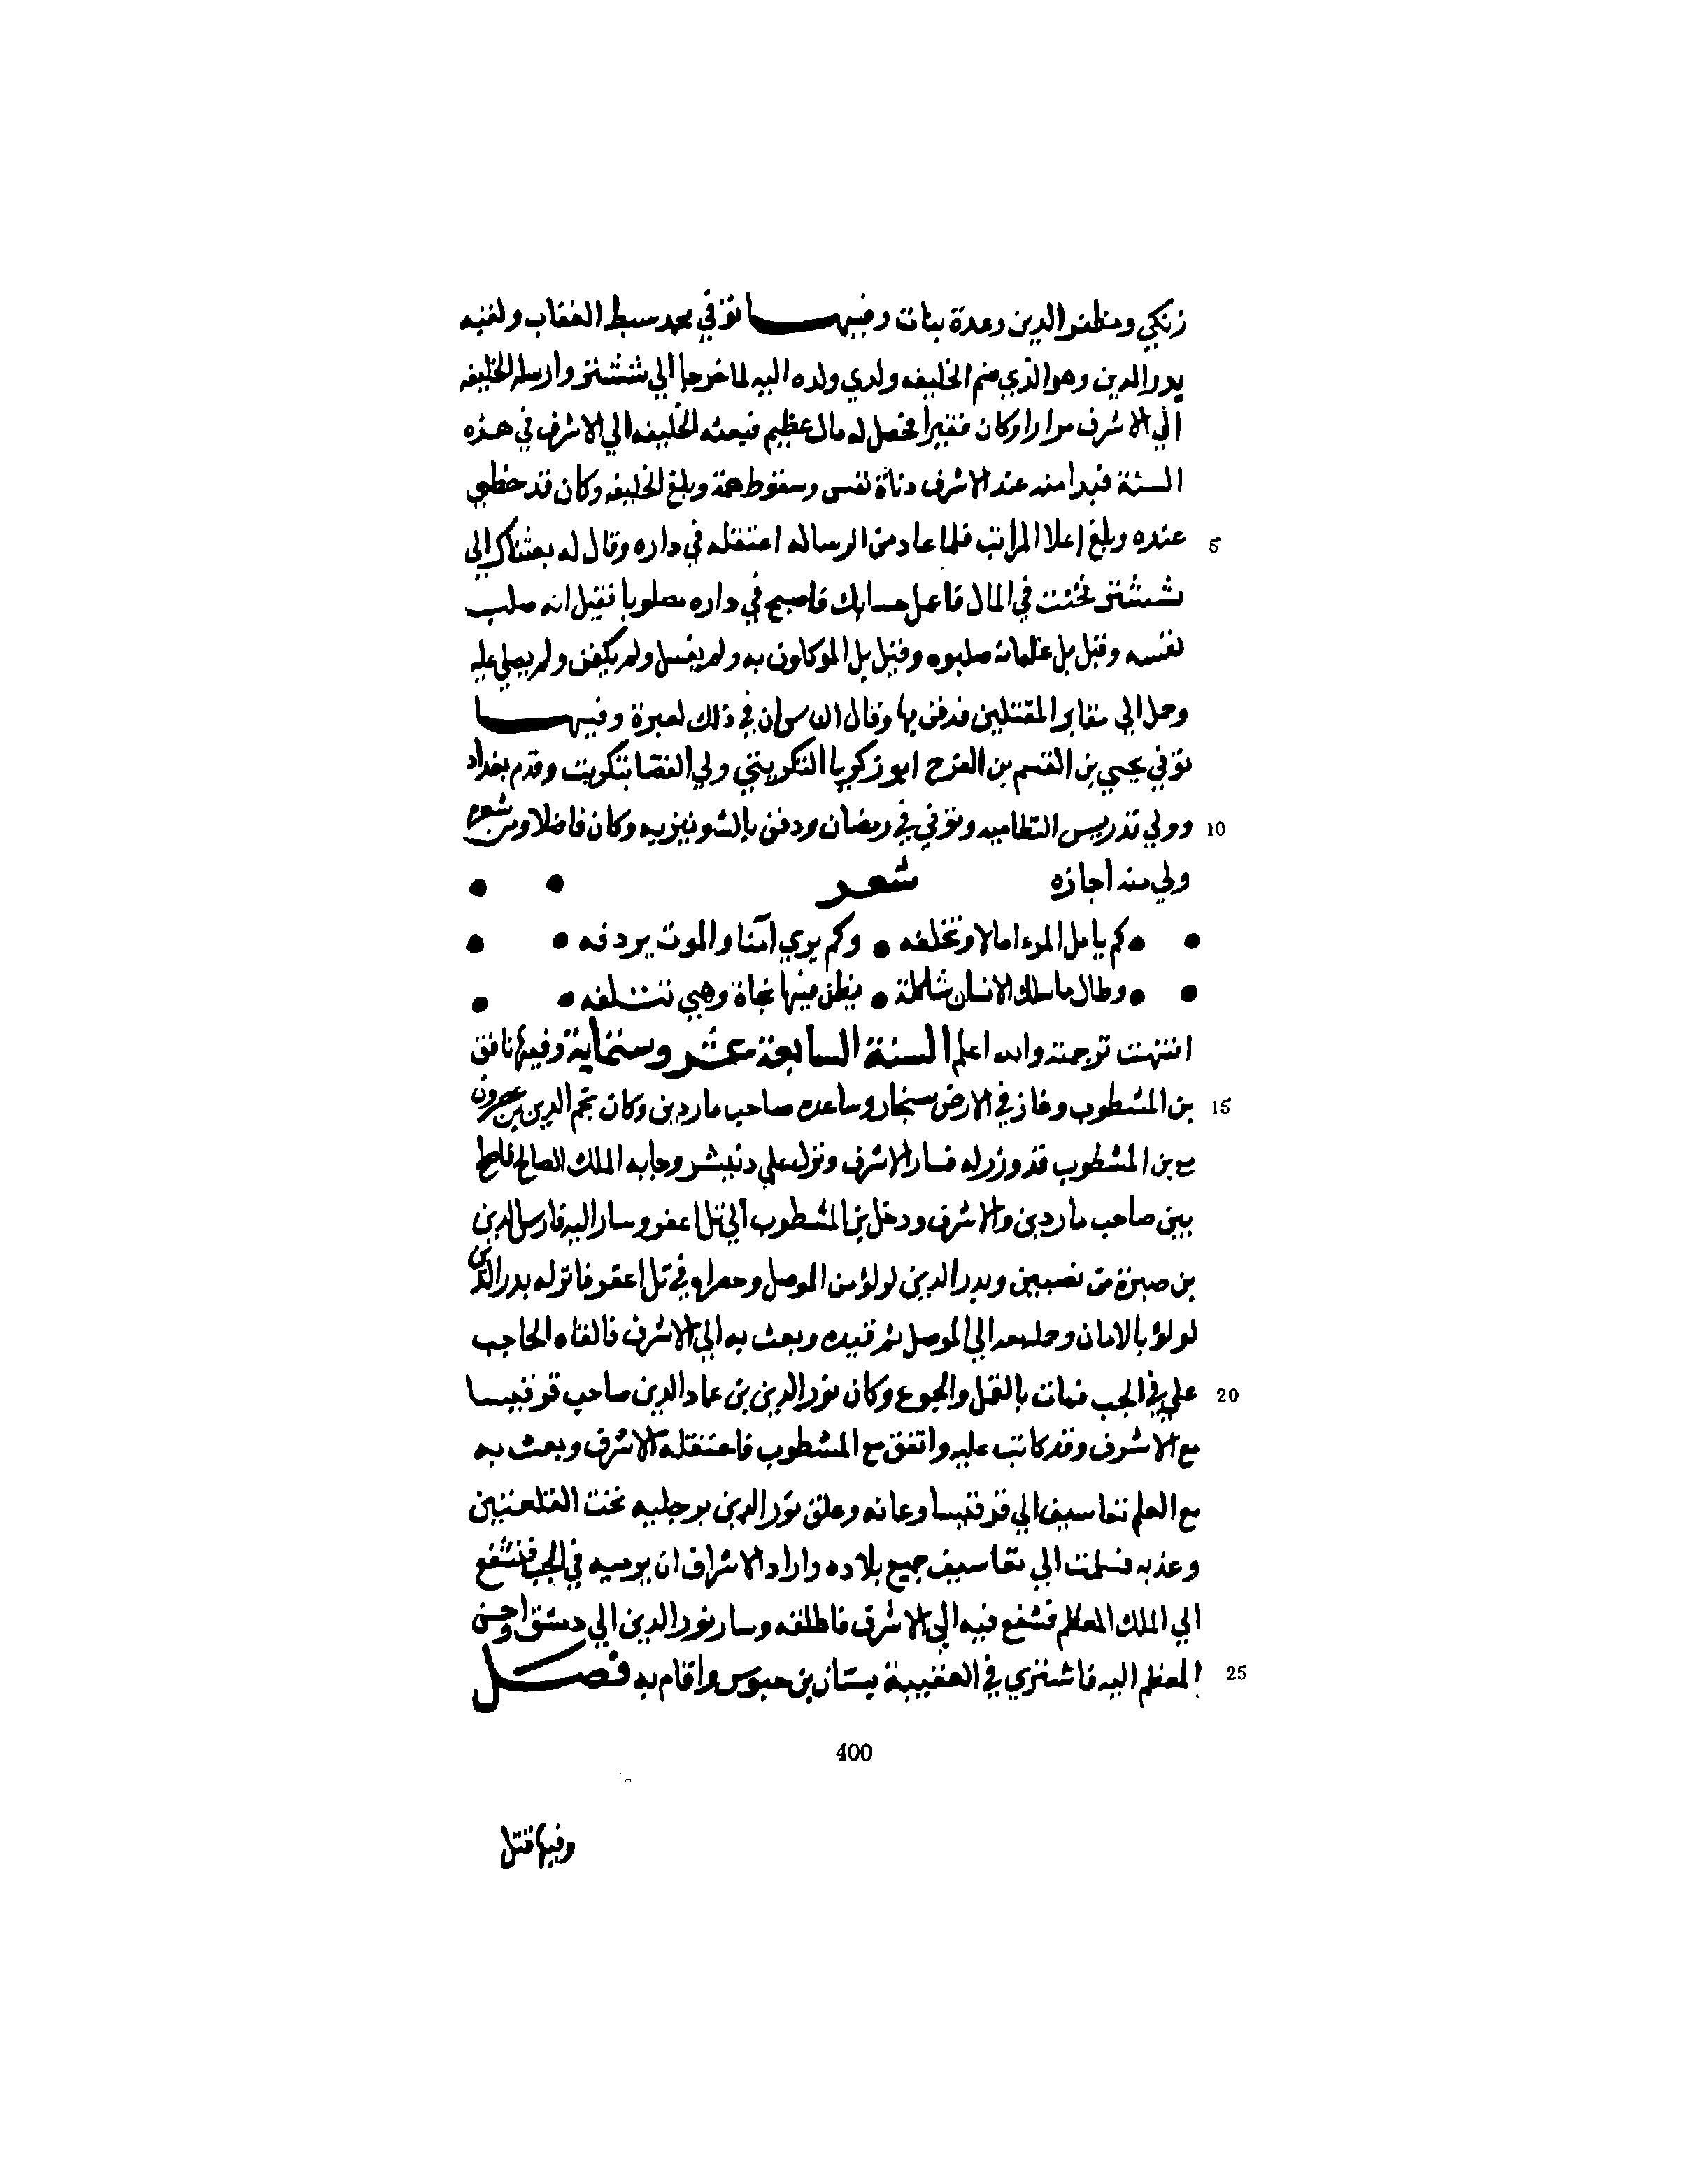 زنكي ومظفر الدين وعدة بنات وفيها توفي محمد سبط العقاب ولقبه
بدر الدين وهو الذي ضم الخليفه ولدي ولده اليه لما خرجا الي ششتر وارسله الخليفه
الي الاشرف مرارا وكان فقيرا فحصل له مال عظيم فبعثه الخليفه الي الاشرف في هذه
السنة فبدا منه عند الاشرف دناة نفس وسقوط همة وبلغ الخليفه وكان قد حظي
5 عنده وبلغ اعلا المراتب فلما عاد من الرساله اعتقله في داره وقال له بعثناك الي
ششتر فخنت في المال فاعمل حسابك فاصبح في داره مصلوبا فقيل انه صلب
نفسه وقيل بل غلمانه صلبوه وقيل بل الموكلون به ولم يغسل ولم يكفن ولم يصلي عليه
وحمل الي مقابر المقتلين فدفن بها وقال الناس ان في ذلك لعبرة وفيها
توفي يحيي بن القسم بن الفرج ابو زكريا التكريتي ولي القضا بتكريت وقدم بغداد
10 وولي تدريس النظاميه وتوفي في رمضان ودفن بالشونيزيه وكان فاضلا ومن شعره
ولي منه اجازه شعر
كم يامل المرء امالا وتخلفه • وكم يري آمنا والموت يردفه
وطال ما سلك الانسان شاكلة • يظن فيها نجاة وهي تتلفه
انتهت ترجمته والله اعلم السنة السابعة عشر وستماية وفيها نافق
15 بن المشطوب وعاز في الارض سنجار وساعده صاحب ماردين وكان نجم الدين بن عصرون
مع بن المشطوب قد وزر له فسار الاشرف ونزل علي دنيسر وجا به الملك الصالح فاصلح
بين صاحب ماردين والاشرف ودخل بن المشطوب الي تل اعفر وسار اليه فارس الدين
بن صبرة من نصيبين وبدر الدين لولؤ من الموصل وحصراه في تل اعفر فانزله بدر الدين
لولؤ بالامان وحمله معه الي الموصل ثم قيده وبعث به الي الاشرف فالقاه الحاجب
20 علي في الجب فمات بالقمل والجوع وكان نور الدين بن عماد الدين صاحب قرقيسا
مع الاشرف وقد كاتب عليه واتفق مع المشطوب فاعتقله الاشرف وبعث به
مع العلم تعاسيف الي قرقيسا وعانه وعلق نور الدين برجليه تحت القلعتين
وعذبه فسلمت الي تعاسيف جميع بلاده واراد الاشراف ان يرميه في الجب فتشفع
الي الملك المعظم فشفع فيه الي الاشرف فاطلقه وسار نور الدين الي دمشق واحسن
25 المعظم اليه فاشتري في العقيبة بستان بن حيوس واقام به فصل
400
وفيها قتل